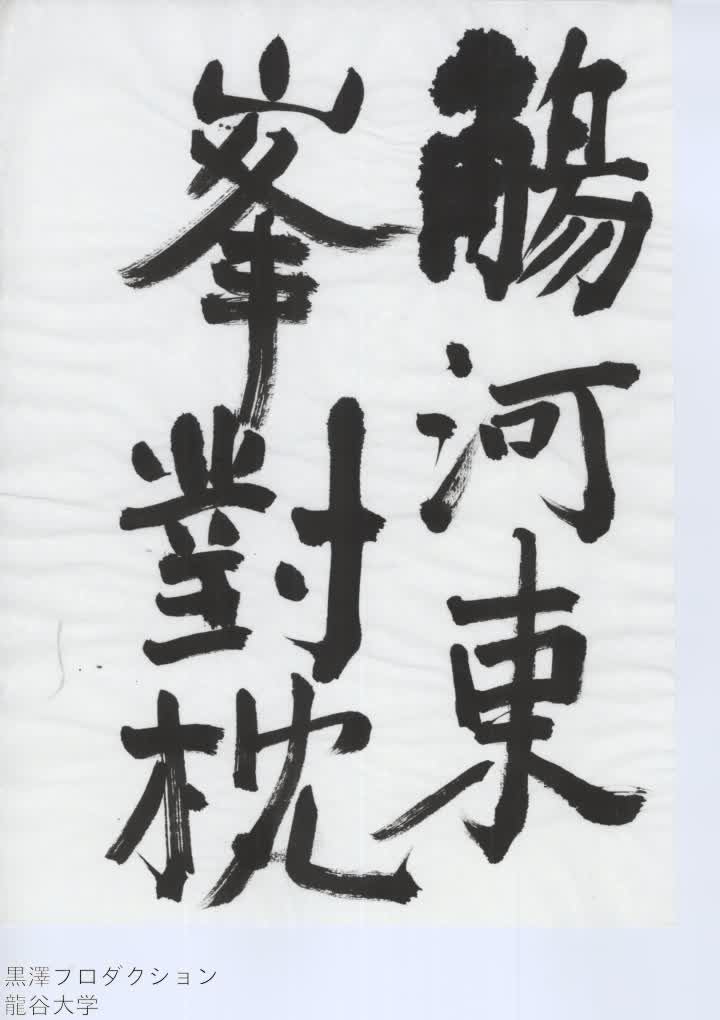 觴河東
峯對枕
黒澤プロダクション
龍谷大学